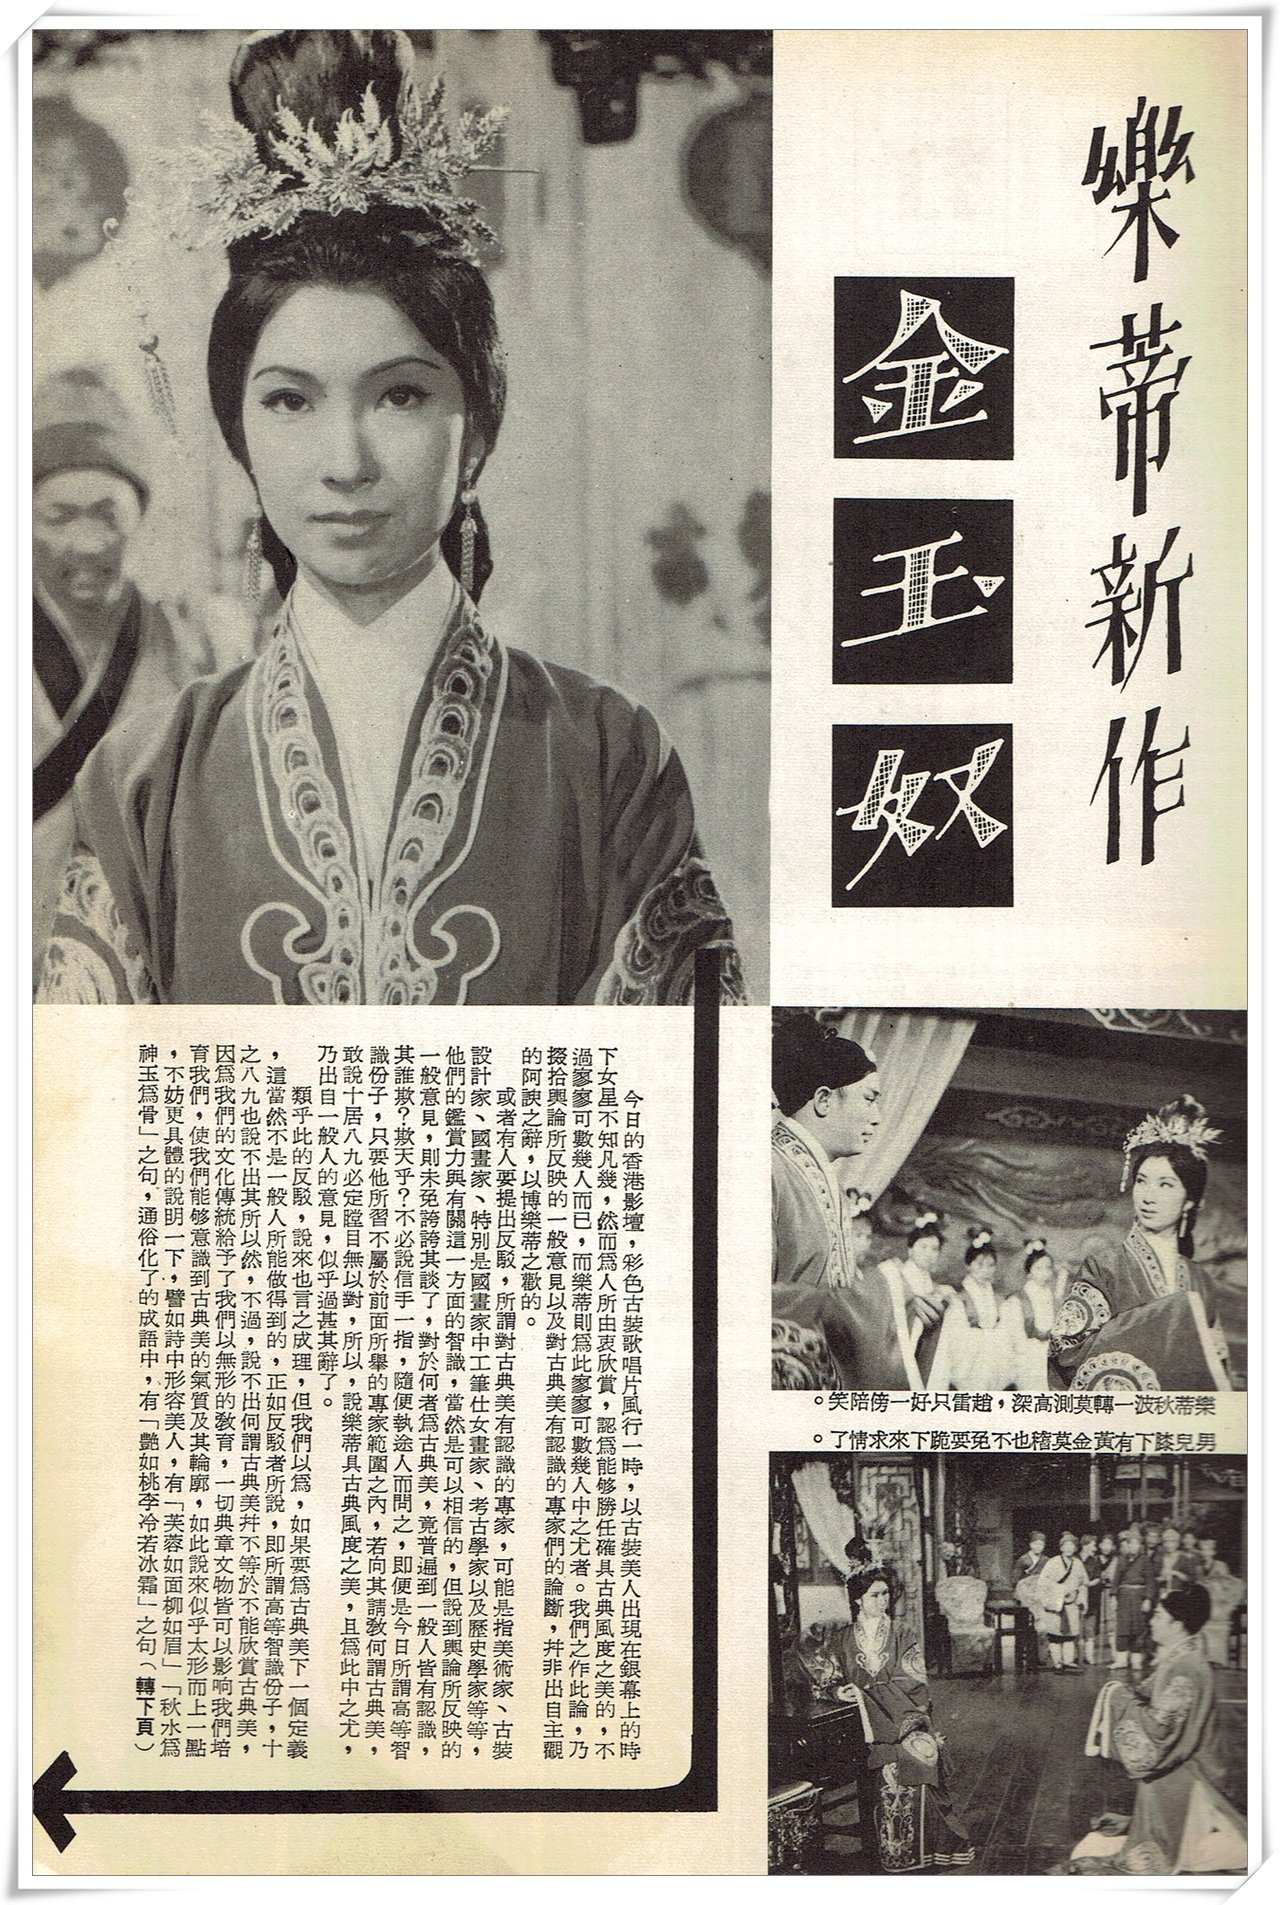 樂蒂新作
金玉奴
樂蒂秋波一轉莫測高深，趙雷只好一傍陪笑。
男兒膝下有黃金莫稽也不免要跪下來求情了。
今日的香港影壇，彩色古裝歌唱片風行一時，以古裝美人出現在銀幕上的時
下女星不知凡幾，然而爲人所由衷欣賞，認爲能够勝任確具古典風度之美的，不
過寥寥可數幾人而已，而樂蒂則爲此寥寥可數幾人中之尤者。我們之作此論，乃
掇拾輿論所反映的一般意見以及對古典美有認識的專家們的論斷，幷非出自主觀
的阿諛之辭，以博樂蒂之歡的。
或者有人要提出反駁，所謂對古典美有認識的專家，可能是指美術家、古裝
設計家、國畫家、特別是國畫家中工筆仕女畫家、考古學家以及歷史學家等等，
他們的鑑賞力與有關這一方面的智識，當然是可以相信的，但說到輿論所反映的
一般意見，則未免誇誇其談了，對於何者爲古典美，竟普遍到一般人皆有認識，
其誰欺？欺天乎？不必說信手一指，隨便執途人而問之，即便是今日所謂高等智
識份子，只要他所習不屬於前面所舉的專家範圍之內，若向其請敎何謂古典美，
敢說十居八九必定瞠目無以對，所以，說樂蒂具古典風度之美，且爲此中之尤，
乃出自一般人的意見，似乎過甚其辭了。
類乎此的反駁，說來也言之成理，但我們以爲，如果要爲古典美下一個定義
，這當然不是一般人所能做得到的，正如反駁者所說，即所謂高等智識份子，十
之八九也說不出其所以然，不過，說不出何謂古典美幷不等於不能欣賞古典美，
因爲我們的文化傳統給予了我們以無形的敎育，一切典章文物皆可以影响我們培
育我們，使我們能够意識到古典美的氣質及其輪廓，如此說來似乎太形而上一點
，不妨更具體的說明一下，譬如詩中形容美人，有「芙蓉如面柳如眉」「秋水爲
神玉爲骨」之句，通俗化了的成語中，有「艷如桃李冷若冰霜」之句（轉下頁）